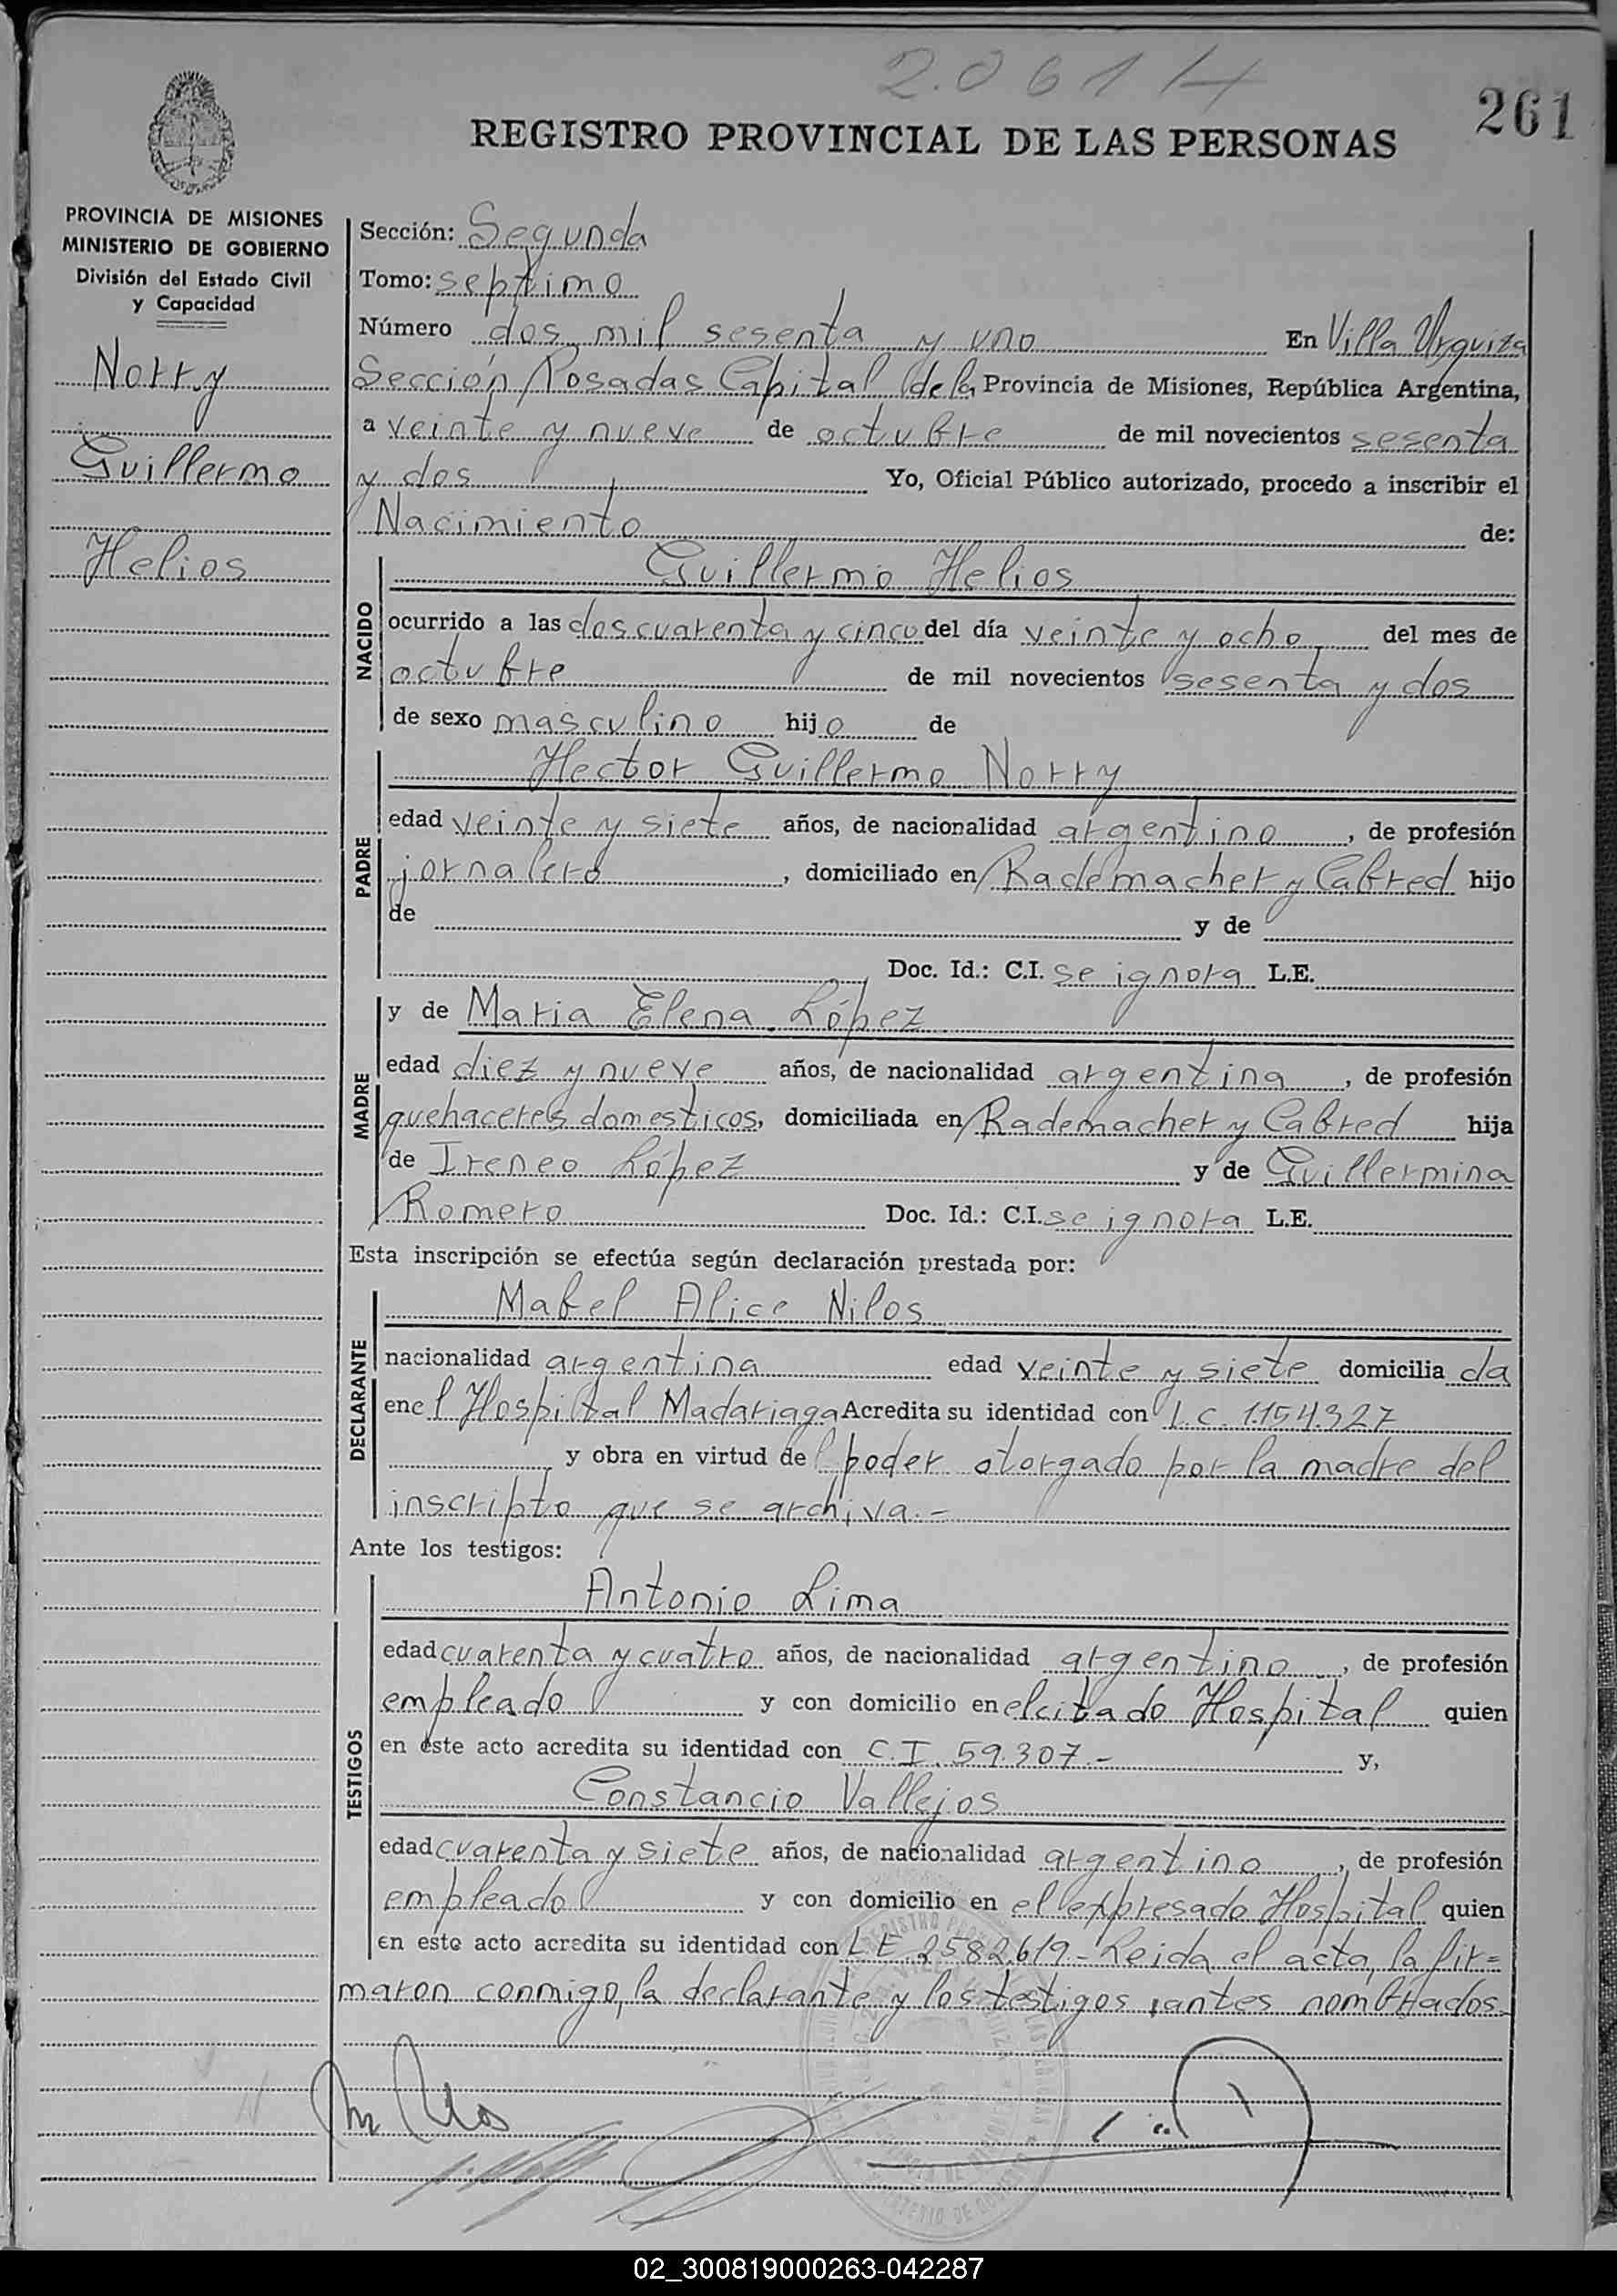 2.061 H
261
REGISTRO PROVINCIAL DE LAS PERSONAS
PROVINCIA DE MISIONES
MINISTERIO DE GOBIERNO
División del Estado Civil
y Capacidad
Norry
Guillermo
Helios
Sección: Segunda
Tomo: septimo
Número dos mil sesenta y uno En Villa Urquiza
Sección Posadas Capital de la Provincia de Misiones, República Argentina,
a veinte y nueve de octubre de mil novecientos sesenta
y dos Yo, Oficial Público autorizado, procedo a inscribir el
Nacimiento de:
NACIDO
Guillermo Helios
ocurrido a las dos cuarenta y cinco del día veinte y ocho del mes de
octubre de mil novecientos sesenta y dos
de sexo masculino hijo de
PADRE
Hector Guillermo Norry
edad veinte y siete años, de nacionalidad argentino, de profesión
jornalero, domiciliado en Rademacher y Cabred hijo
de y de
Doc. Id.: C.I. se ignora L.E.
MADRE
y de Maria Elena López
edad diez y nueve años, de nacionalidad argentina, de profesión
quehaceres domesticos, domiciliada en Rademacher y Cabred hija
de Ireneo López y de Guillermina
Romero Doc. Id.: C.I. se ignora L.E.
Esta inscripción se efectúa según declaración prestada por:
DECLARANTE
Mabel Alice Nilos
nacionalidad argentina edad veinte y siete domiciliada
en el Hospital Madariaga Acredita su identidad con L.C. 1.154.327
y obra en virtud del poder otorgado por la madre del
inscripto que se archiva.-
Ante los testigos:
TESTIGOS
Antonio Lima
edad cuarenta y cuatro años, de nacionalidad argentino, de profesión
empleado y con domicilio en el citado Hospital quien
en este acto acredita su identidad con C.I. 59.307.- y,
Constancio Vallejos
edad cuarenta y siete años, de nacionalidad argentino, de profesión
empleado y con domicilio en el expresado Hospital quien
en este acto acredita su identidad con L E 2582.619.- Leida el acta, la fir=
maron conmigo, la declarante y los testigos antes nombrados
02_300819000263-042287